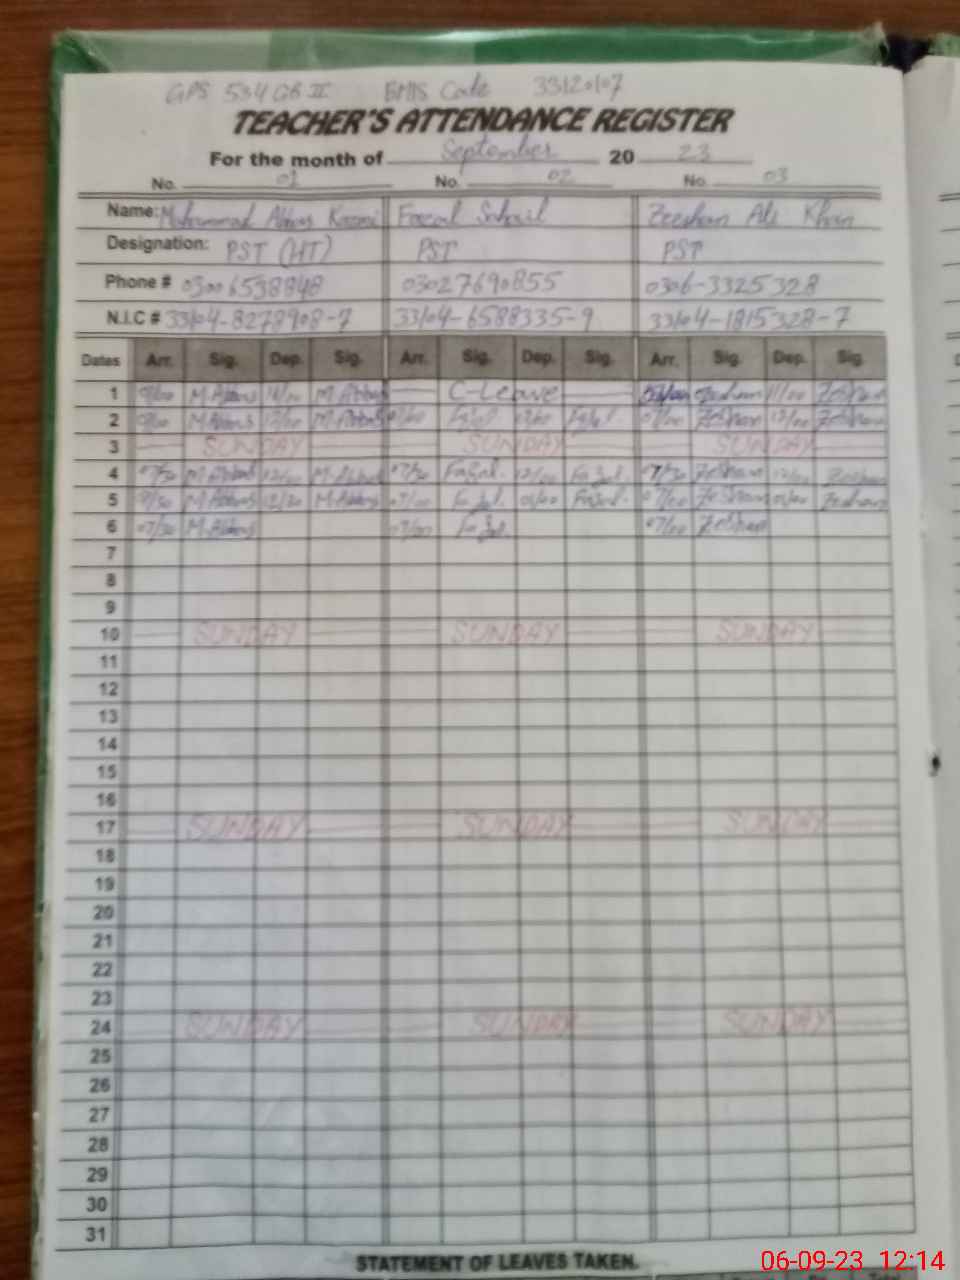 GPS 534 GB II EMIS Code 33120107
TEACHER'S ATTENDANCE REGISTER
For the month of September 20 23
No. 01 No. 02 No. 03
Name: Muhammad Abbas Fazal Sohail Zeeshan Ali Khan
Designation: PST (HT) PST PST
Phone # 03006538848 03027690855 0306-3325328
N.I.C # 33104-8278908-7 33104-6588335-9 33104-1815328-7
Dates Arr. Sig. Dep. Sig. Arr. Sig. Dep. Sig. Arr. Sig. Dep. Sig.
1 M.Abbas M.Abbas C-Leave Zeshan 11/00 Zeshan
2 M.Abbas 12/00 M.Abbas Fazal Fazal 07/00 Zeshan 12/00 Zeshan
3 SUNDAY SUNDAY SUNDAY
4 07/30 M.Abbas 12/00 M.Abbas 07/30 Fazal. 12/00 Fazal. 07/30 Zeshan 12/00 Zeshan
5 07/30 M.Abbas 12/30 M.Abbas 07/00 Fazal. Fazal. 07/00 Zeshan Zeshan
6 07/30 M.Abbas 07/00 Fazal. 07/00 Zeshan
7
8
9
10 SUNDAY SUNDAY SUNDAY
11
12
13
14
15
16
17 SUNDAY SUNDAY SUNDAY
18
19
20
21
22
23
24 SUNDAY SUNDAY SUNDAY
25
26
27
28
29
30
31
STATEMENT OF LEAVES TAKEN.
06-09-23 12:14